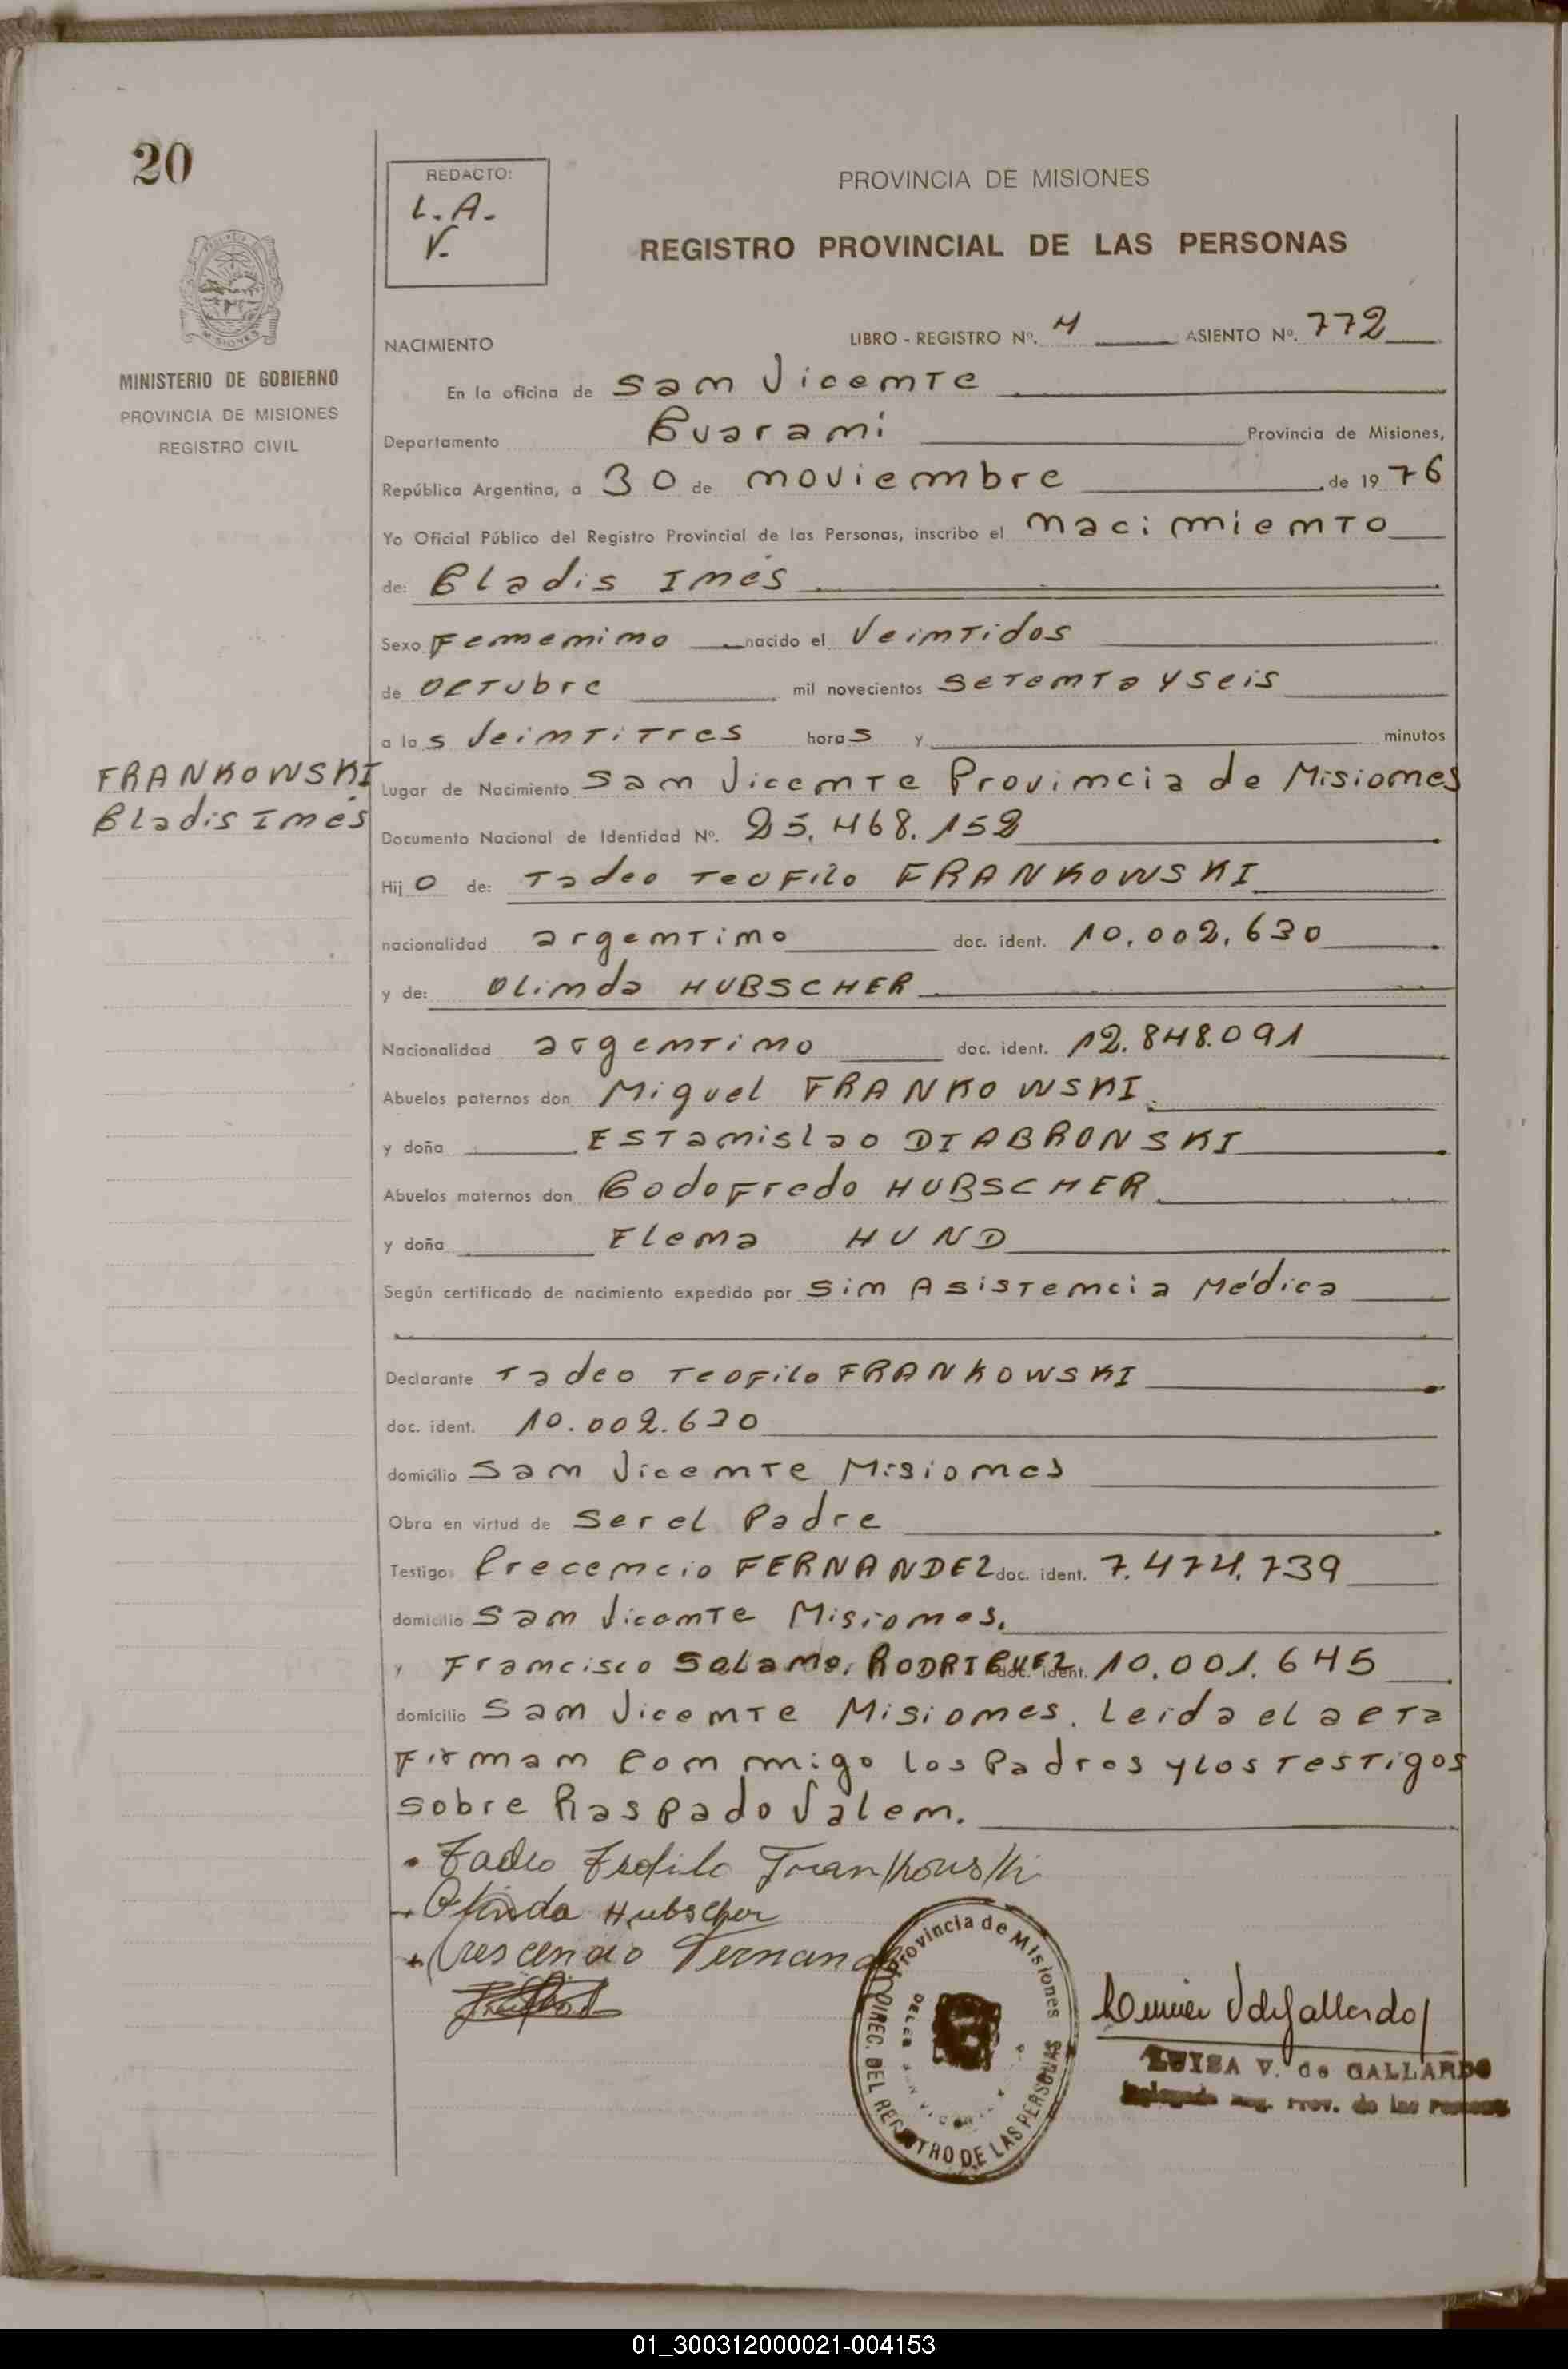 20
REDACTO:
L. A.
V.
PROVINCIA DE MISIONES
REGISTRO PROVINCIAL DE LAS PERSONAS
MINISTERIO DE GOBIERNO
PROVINCIA DE MISIONES
REGISTRO CIVIL
NACIMIENTO LIBRO - REGISTRO Nº. 4 ASIENTO Nº. 772
En la oficina de San Vicente
Departamento Guarani Provincia de Misiones,
República Argentina, a 30 de noviembre de 1976
Yo Oficial Público del Registro Provincial de las Personas, inscribo el nacimiento
de: Gladis Inés
Sexo Femenino nacido el Veintidos
de octubre mil novecientos setenta y seis
a las Veintitres horas y minutos
FRANKOWSKI
Gladis Inés
Lugar de Nacimiento San Vicente Provincia de Misiones
Documento Nacional de Identidad Nº. 25.468.152
Hijo de: Tadeo Teofilo FRANKOWSKI
nacionalidad argentino doc. ident. 10.002.630
y de: Olinda HUBSCHER
Nacionalidad argentino doc. ident. 12.848.091
Abuelos paternos don Miguel FRANKOWSKI
y doña Estanislao DIABRONSKI
Abuelos maternos don Godofredo HUBSCHER
y doña Elena HUND
Según certificado de nacimiento expedido por Sin Asistencia Médica
Declarante Tadeo Teofilo FRANKOWSKI
doc. ident. 10.002.630
domicilio San Vicente Misiones
Obra en virtud de Ser el Padre
Testigo: Crecencio FERNANDEZ doc. ident. 7.474.739
domicilio San Vicente Misiones.
y Francisco Solano, RODRIGUEZ doc. ident. 10.001.645
domicilio San Vicente Misiones. Leida el acta
Firman con migo los Padres y los Testigos
sobre Raspado Valen.
Tadeo Teofilo Frankowski
Olinda Hubscher
Crescencio Fernand
Provincia de Misiones
DIREC. DEL REGISTRO DE LAS PERSONAS
LUISA V. de GALLARDO
Delegada Reg. Prov. de las Personas
01_300312000021-004153